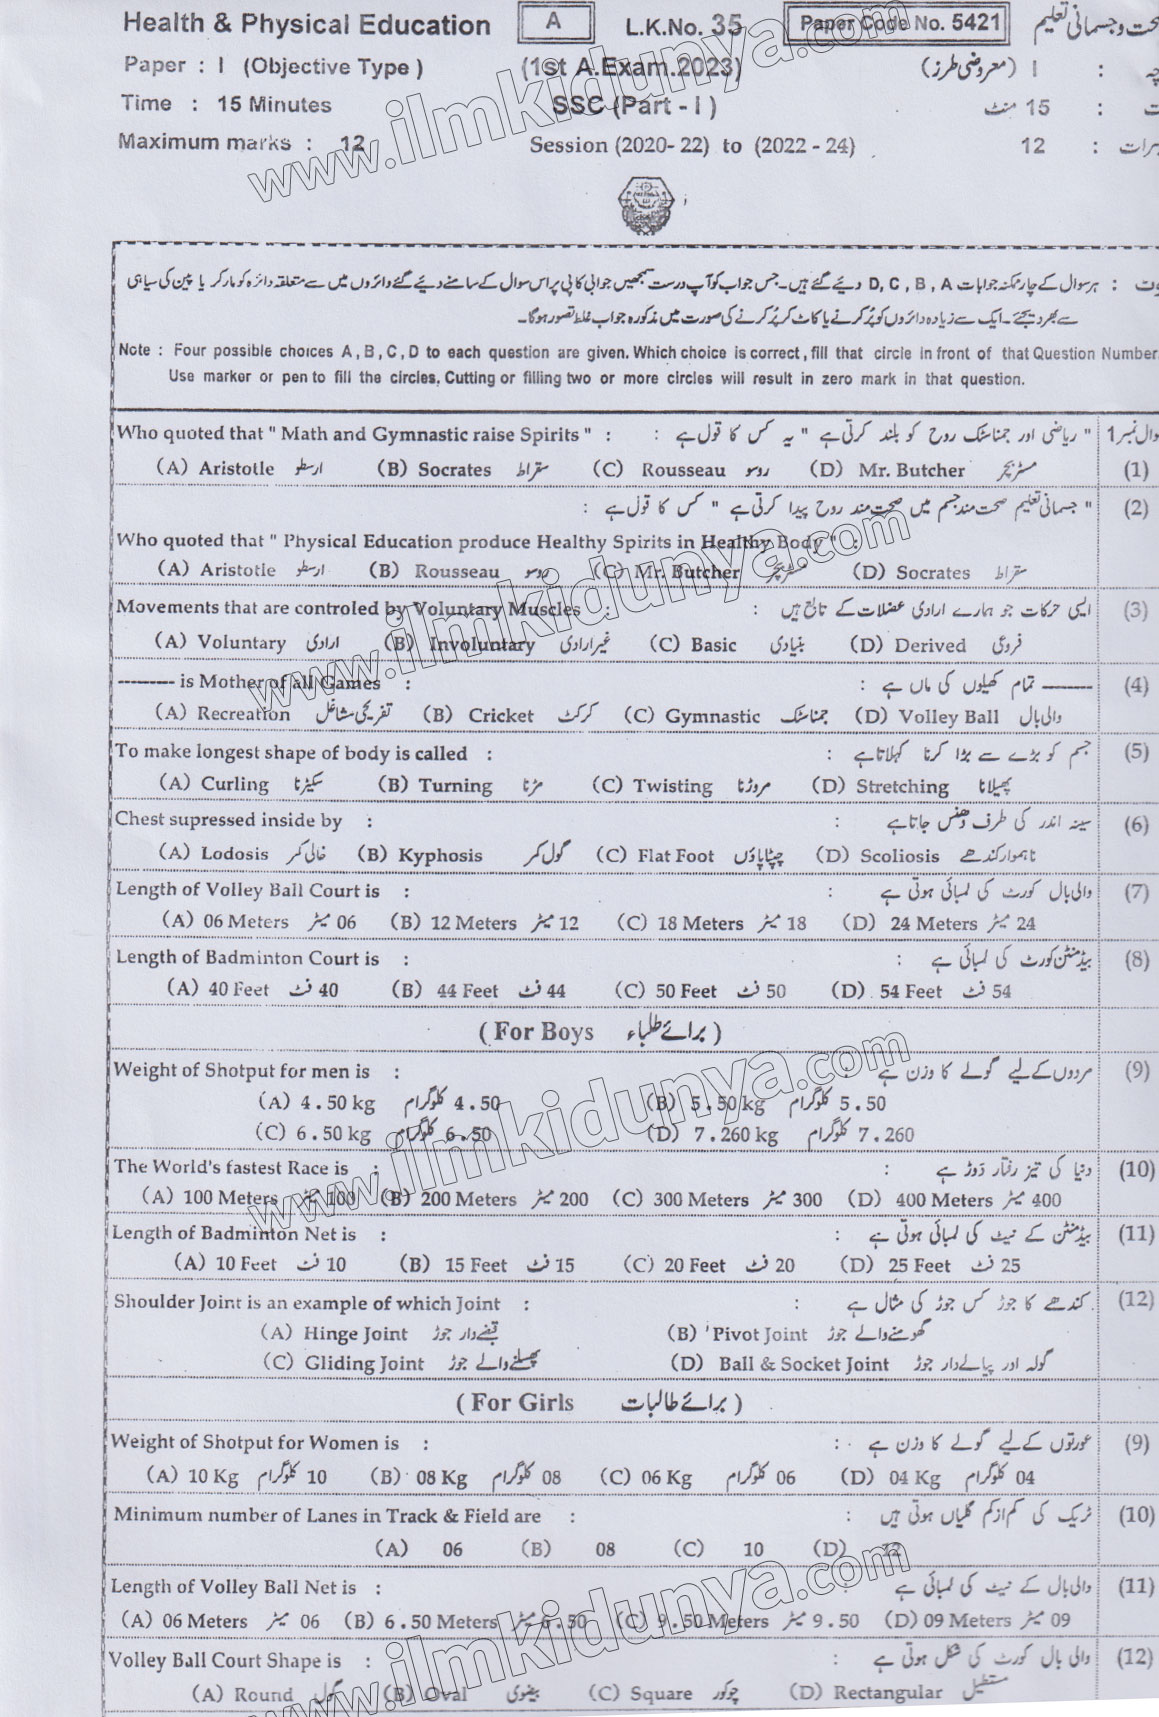 Health & Physical Education A L.K.No. 35 Paper Code No. 5421 صحت و جسمانی تعلیم
Paper : I (Objective Type) (1st A.Exam.2023) I (معروضی طرز) :
Time : 15 Minutes SSC (Part - I) 15 منٹ :
Maximum marks : 12 Session (2020- 22) to (2022 - 24) 12 :
ہر سوال کے چار ممکنہ جوابات D, C, B, A دیئے گئے ہیں۔ جس جواب کو آپ درست سمجھیں جوابی کاپی پر اس سوال کے سامنے دیئے گئے دائروں میں سے متعلقہ دائرہ کو مارکر یا پین کی سیاہی
سے بھر دیجئے۔ ایک سے زیادہ دائروں کو پُر کرنے یا کاٹ کر پُر کرنے کی صورت میں مذکورہ جواب غلط تصور ہوگا۔
Note : Four possible choices A, B, C, D to each question are given. Which choice is correct, fill that circle in front of that Question Number.
Use marker or pen to fill the circles. Cutting or filling two or more circles will result in zero mark in that question.
Who quoted that " Math and Gymnastic raise Spirits " : : " ریاضی اور جمناسٹک روح کو بلند کرتی ہے " یہ کس کا قول ہے سوال نمبر 1
(A) Aristotle ارسطو (B) Socrates سقراط (C) Rousseau روسو (D) Mr. Butcher مسٹر بچر (1)
" جسمانی تعلیم صحت مند جسم میں صحت مند روح پیدا کرتی ہے " کس کا قول ہے : (2)
Who quoted that " Physical Education produce Healthy Spirits in Healthy Body " :
(A) Aristotle ارسطو (B) Rousseau روسو (C) Mr. Butcher مسٹر بچر (D) Socrates سقراط
Movements that are controled by Voluntary Muscles : : ایسی حرکات جو ہمارے ارادی عضلات کے تابع ہیں (3)
(A) Voluntary ارادی (B) Involuntary غیر ارادی (C) Basic بنیادی (D) Derived فروعی
-------- is Mother of all Games : : -------- تمام کھیلوں کی ماں ہے (4)
(A) Recreation تفریحی مشاغل (B) Cricket کرکٹ (C) Gymnastic جمناسٹک (D) Volley Ball والی بال
To make longest shape of body is called : : جسم کو بڑے سے بڑا کرنا کہلاتا ہے (5)
(A) Curling سکیڑنا (B) Turning مڑنا (C) Twisting مروڑنا (D) Stretching پھیلانا
Chest supressed inside by : : سینہ اندر کی طرف دھنس جاتا ہے (6)
(A) Lodosis خالی کمر (B) Kyphosis گول کمر (C) Flat Foot چپٹا پاؤں (D) Scoliosis ناہموار کندھے
Length of Volley Ball Court is : : والی بال کورٹ کی لمبائی ہوتی ہے (7)
(A) 06 Meters 06 میٹر (B) 12 Meters 12 میٹر (C) 18 Meters 18 میٹر (D) 24 Meters 24 میٹر
Length of Badminton Court is : : بیڈمنٹن کورٹ کی لمبائی ہے (8)
(A) 40 Feet 40 فٹ (B) 44 Feet 44 فٹ (C) 50 Feet 50 فٹ (D) 54 Feet 54 فٹ
( For Boys برائے طلباء )
Weight of Shotput for men is : : مردوں کے لیے گولے کا وزن ہے (9)
(A) 4.50 kg 4.50 کلوگرام (B) 5.50 kg 5.50 کلوگرام
(C) 6.50 kg 6.50 کلوگرام (D) 7.260 kg 7.260 کلوگرام
The World's fastest Race is : : دنیا کی تیز رفتار دوڑ ہے (10)
(A) 100 Meters 100 میٹر (B) 200 Meters 200 میٹر (C) 300 Meters 300 میٹر (D) 400 Meters 400 میٹر
Length of Badminton Net is : : بیڈمنٹن کے نیٹ کی لمبائی ہوتی ہے (11)
(A) 10 Feet 10 فٹ (B) 15 Feet 15 فٹ (C) 20 Feet 20 فٹ (D) 25 Feet 25 فٹ
Shoulder Joint is an example of which Joint : : کندھے کا جوڑ کس جوڑ کی مثال ہے (12)
(A) Hinge Joint قبضے دار جوڑ (B) Pivot Joint گھومنے والے جوڑ
(C) Gliding Joint پھسلنے والے جوڑ (D) Ball & Socket Joint گولہ اور پیالے دار جوڑ
( For Girls برائے طالبات )
Weight of Shotput for Women is : : عورتوں کے لیے گولے کا وزن ہے (9)
(A) 10 Kg 10 کلوگرام (B) 08 Kg 08 کلوگرام (C) 06 Kg 06 کلوگرام (D) 04 Kg 04 کلوگرام
Minimum number of Lanes in Track & Field are : : ٹریک کی کم از کم گلیاں ہوتی ہیں (10)
(A) 06 (B) 08 (C) 10 (D) 12
Length of Volley Ball Net is : : والی بال کے نیٹ کی لمبائی ہے (11)
(A) 06 Meters 06 میٹر (B) 6.50 Meters 6.50 میٹر (C) 9.50 Meters 9.50 میٹر (D) 09 Meters 09 میٹر
Volley Ball Court Shape is : : والی بال کورٹ کی شکل ہوتی ہے (12)
(A) Round گول (B) Oval بیضوی (C) Square چوکور (D) Rectangular مستطیل
www.ilmkidunya.com
www.ilmkidunya.com
www.ilmkidunya.com
www.ilmkidunya.com